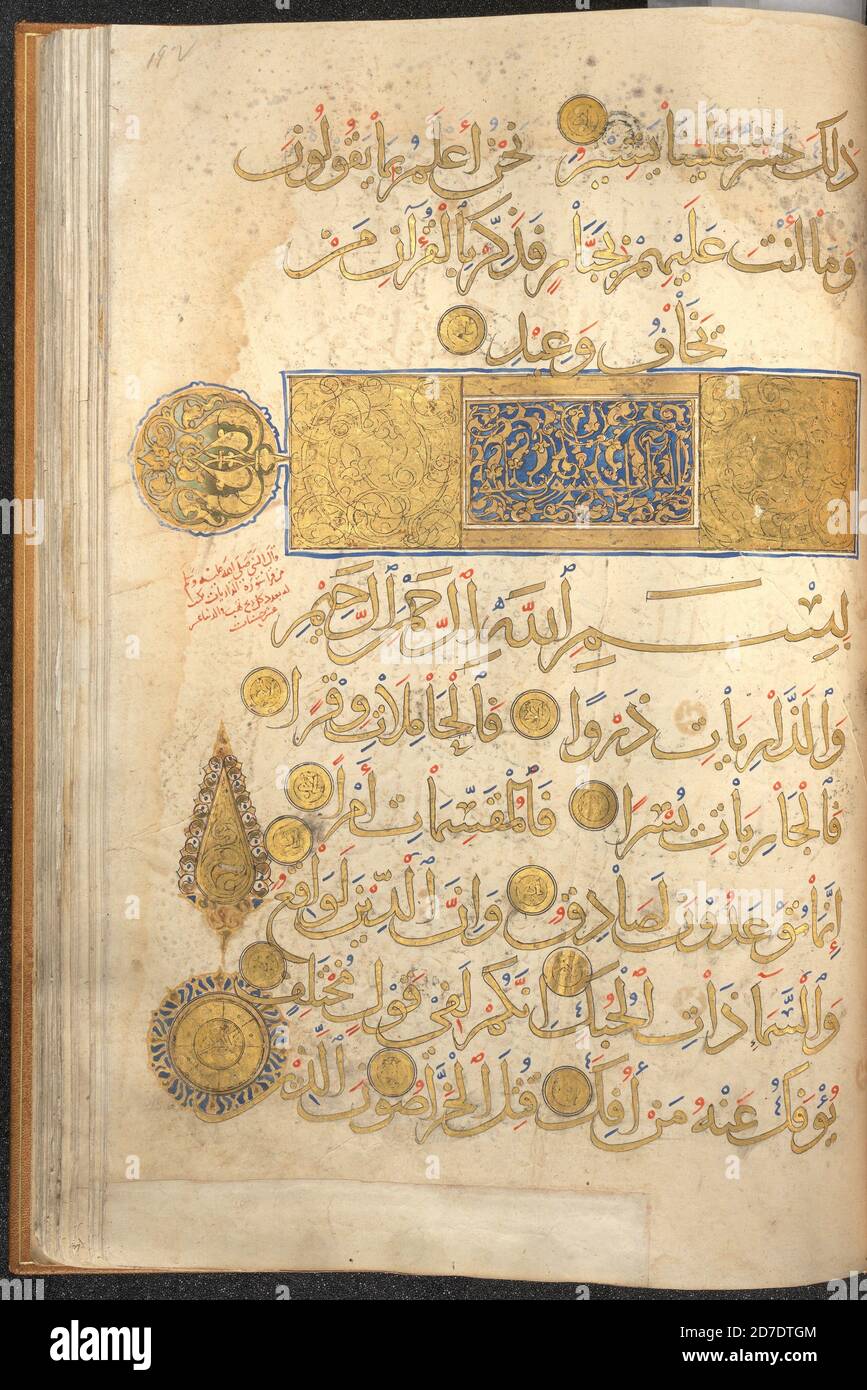 ١٩٢
ذَٰلِكَ حَشْرٌ عَلَيْنَا يَسِيرٌ نَحْنُ أَعْلَمُ بِمَا يَقُولُونَ
وَمَا أَنْتَ عَلَيْهِمْ بِجَبَّارٍ فَذَكِّرْ بِالْقُرْآنِ مَنْ
يَخَافُ وَعِيدِ
قال النبي صلى الله عليه وسلم
من قرا سورة الذاريات
عشر حسنات
بِسْمِ اللَّهِ الرَّحْمَٰنِ الرَّحِيمِ
وَالذَّارِيَاتِ ذَرْوًا فَالْحَامِلَاتِ وِقْرًا
فَالْجَارِيَاتِ يُسْرًا فَالْمُقَسِّمَاتِ أَمْرًا
إِنَّمَا تُوعَدُونَ لَصَادِقٌ وَإِنَّ الدِّينَ لَوَاقِعٌ
وَالسَّمَاءِ ذَاتِ الْحُبُكِ إِنَّكُمْ لَفِي قَوْلٍ مُخْتَلِفٍ
يُؤْفَكُ عَنْهُ مَنْ أُفِكَ قُتِلَ الْخَرَّاصُونَ الَّذِينَ
alamy
Image ID: 2D7DTGM
www.alamy.com